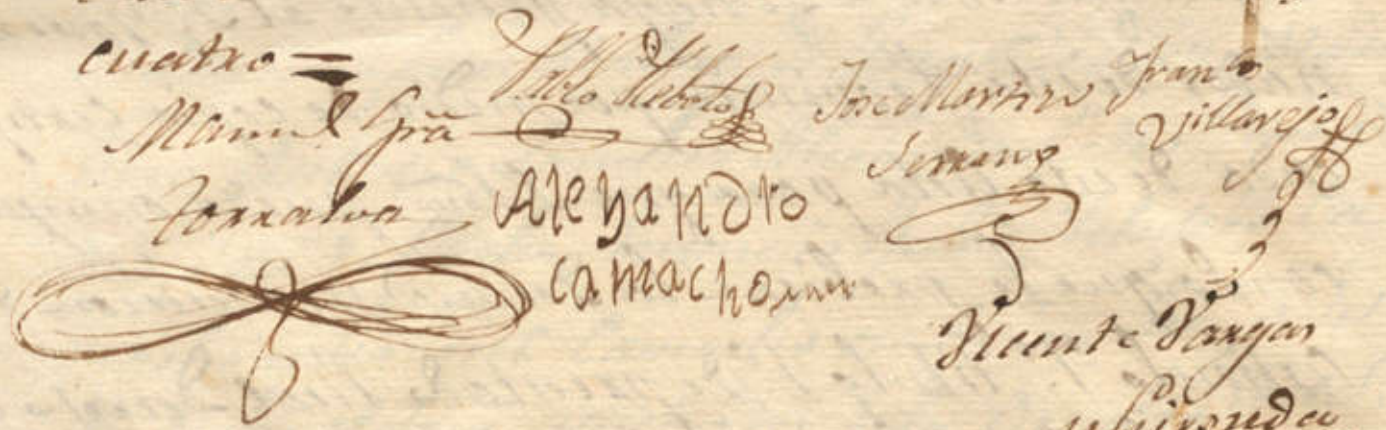 cuatro =
Manuel Grã
Torralva
Pablo Reboto
Alexandro
camacho
Jose Marzo
Serrano
Franco
Villarejo
Vicente Vargas